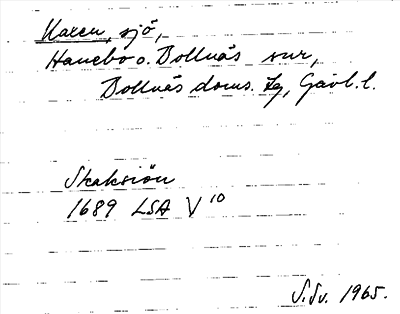 Haxen, sjö,
Hanebo o. Bollnäs snr,
Bollnäs doms. tg, Gävl. l.
Skaksiön
1689 LSA V 10
S.Sv. 1965.